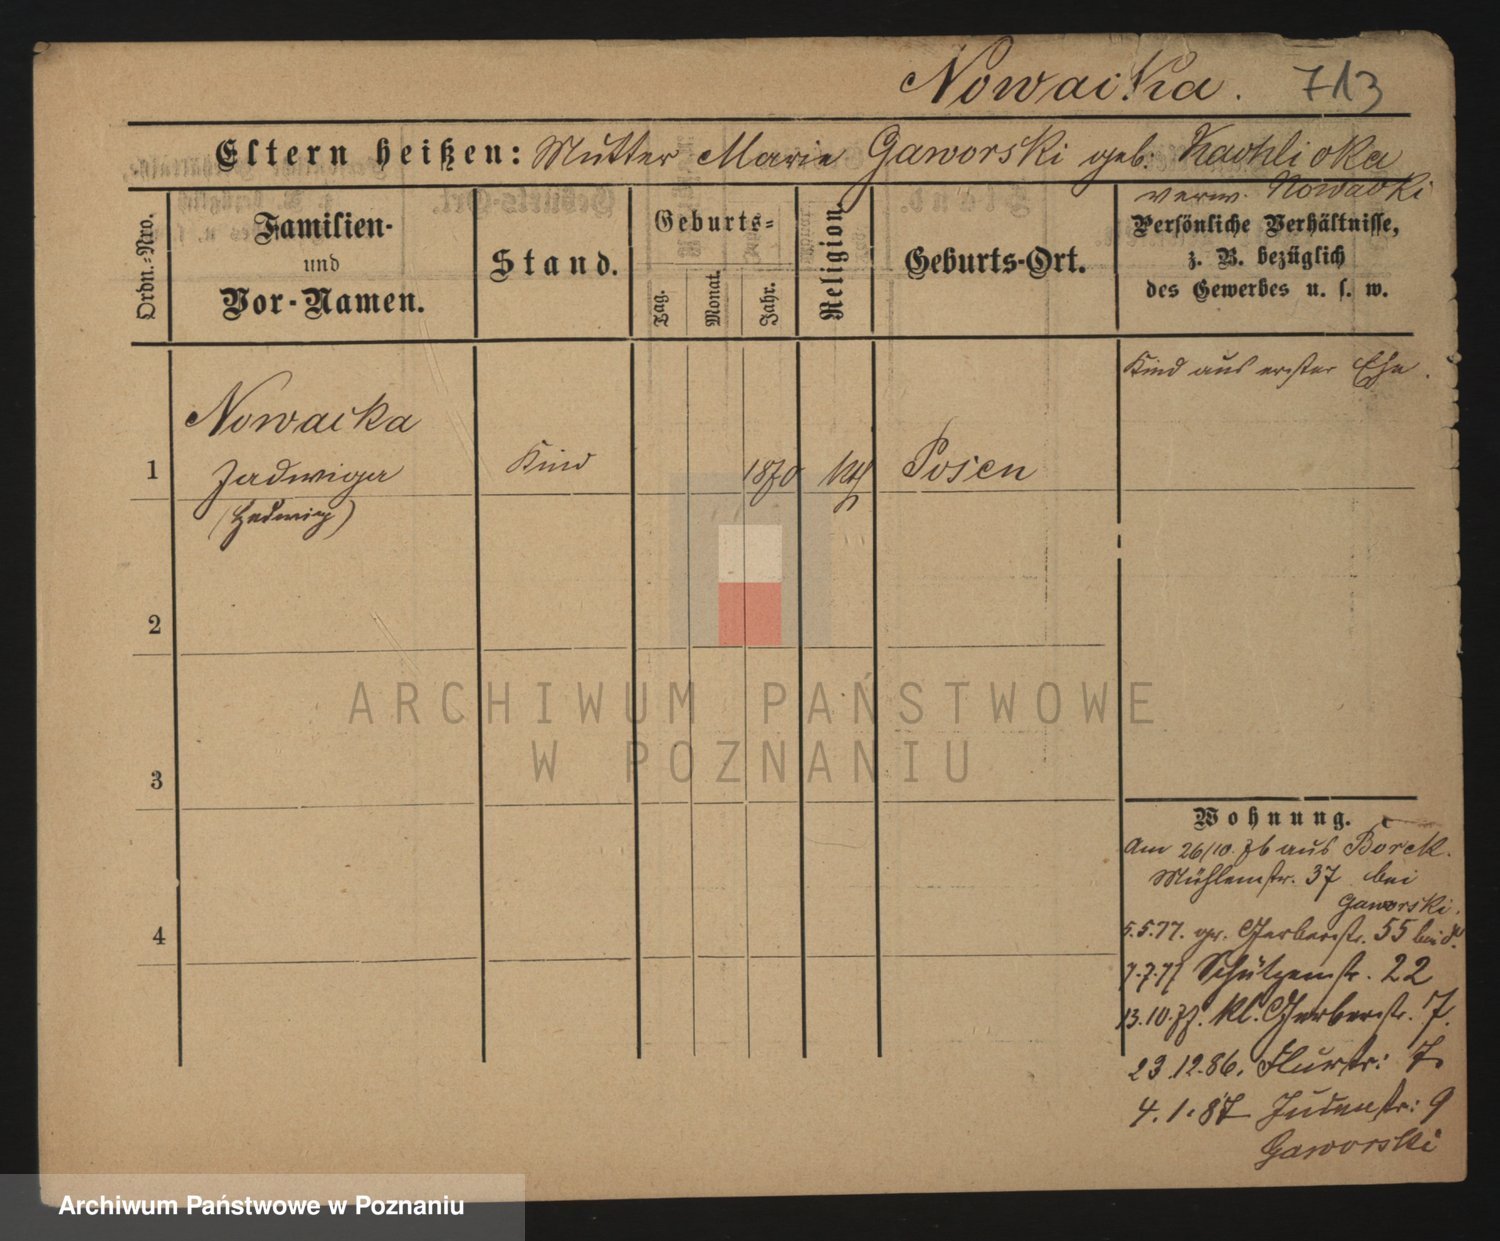 Nowacka. 713
Eltern heißen: Mutter Marie Gaworski geb. Kachlicka
verw. Nowacki
Ordn.-Nro.
Familien-
und
Vor-Namen.
Stand.
Geburts-
Tag.
Monat.
Jahr.
Religion.
Geburts-Ort.
Persönliche Verhältnisse,
z. B. bezüglich
des Gewerbes u. s. w.
Kind aus erster Ehe.
Nowacka
1 Jadwiga Kind 1870 kth Posen
(Hedwig)
2
3
4
Wohnung.
Am 26/10. 76 aus Borek.
Mühlenstr. 37 bei
Gaworski.
5.5.77. gr. Gerberstr. 55 bei
7.7.77 Schützenstr. 22
13.10.77. kl. Gerberstr. 7.
23.12.86. Flurstr: 7.
4.1.87 Judenstr: 9
Gaworski
ARCHIWUM PAŃSTWOWE
W POZNANIU
Archiwum Państwowe w Poznaniu